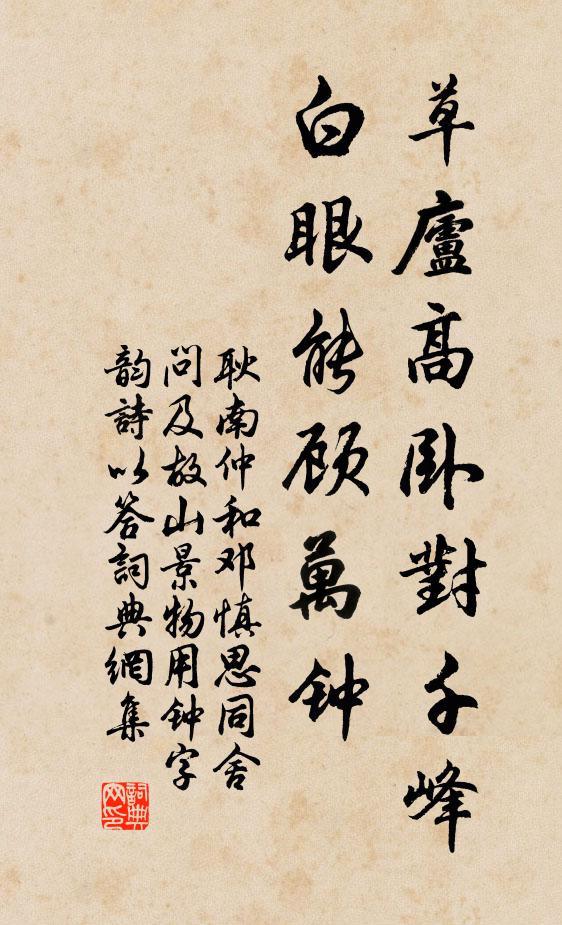 草廬高卧對千峰
白眼能顾萬钟
耿南仲和邓慎思同舍
问及故山景物用钟字
韵詩以答詞典網集
詞典
网印